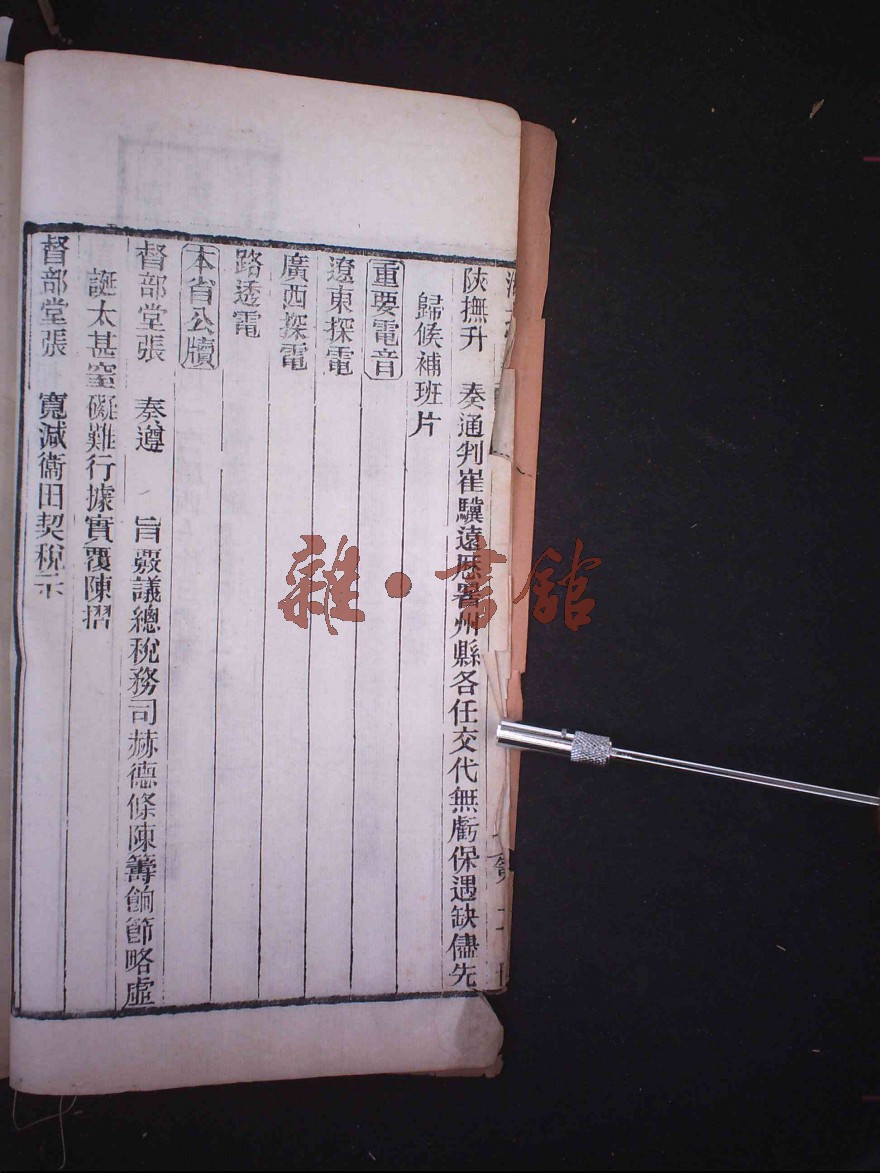 陝撫升　奏通判崔驥遠歷署州縣各任交代無虧保遇缺儘先
歸候補班片
重要電音
遼東探電
廣西探電
路透電
本省公牘
督部堂張　奏遵　旨覈議總稅務司赫德條陳籌餉節略虛
誕太甚窒礙難行據實覆陳摺
督部堂張　寬減衞田契稅示
雜·書館